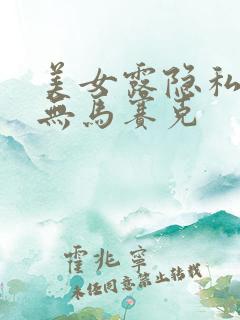 美女露隐私
無馬賽克
霍兆寧
未经同意禁止转载